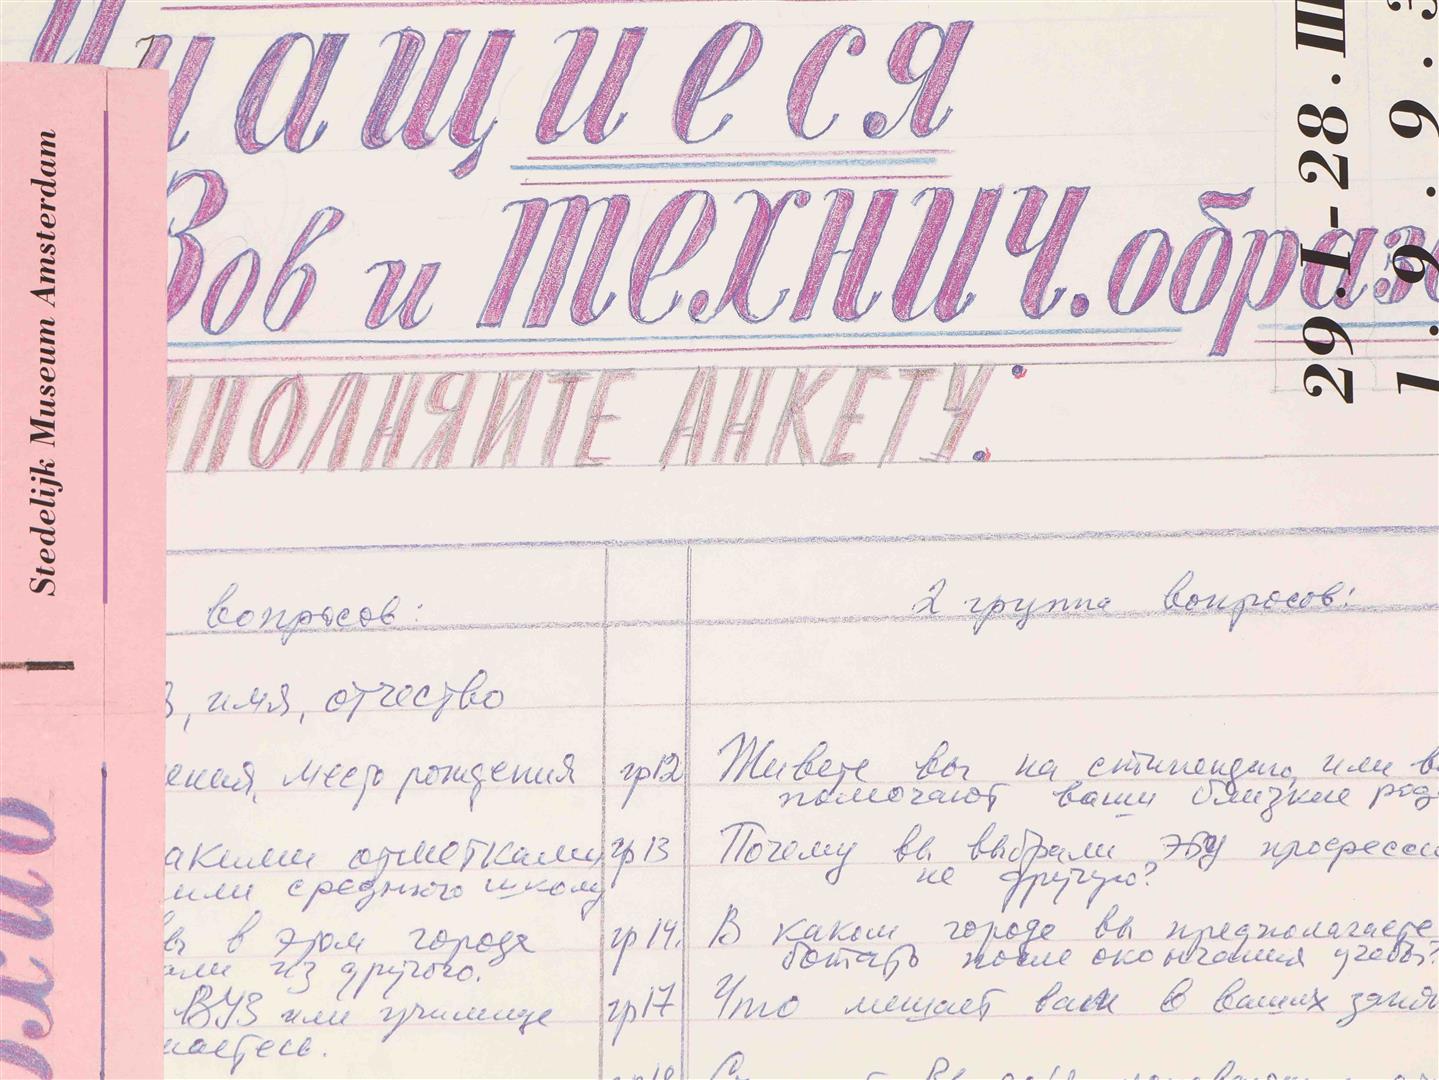 Учащиеся
Зов и технич. образ
УПОЛНЯЙТЕ АНКЕТУ.
Stedelijk Museum Amsterdam
29.I-28.III
1.9.9.3
вопросов:
2 группа вопросов:
, имя, отчество
ения, место рождения
гр12
Живете вы на стипендию, или в
помогают ваши близкие род
акими отметками
или среднюю школу
гр13
Почему вы выбрали эту професси
не другую?
вы в этом городе
али из другого.
гр14.
В каком городе вы предполагаете
ботать после окончания учебы?
ВУЗ или училище
маетесь.
гр17
Что мешает вам в ваших заня